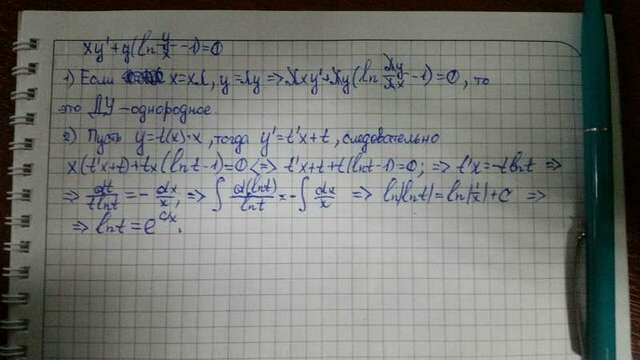 xy'+y(ln y/x -1)=0
1) Если x=xλ, y=λy => λxy'+λy(ln λy/λx -1)=0, то
это ДУ - однородное.
2) Пусть y=t(x)·x, тогда y'=t'x+t, следовательно
x(t'x+t)+tx(lnt-1)=0 <=> t'x+t+t(lnt-1)=0; => t'x=-tlnt =>
=> dt/tlnt = - dx/x; => ∫ d(lnt)/lnt = -∫ dx/x => ln|lnt|=ln|1/x|+c =>
=> lnt=e^cx.